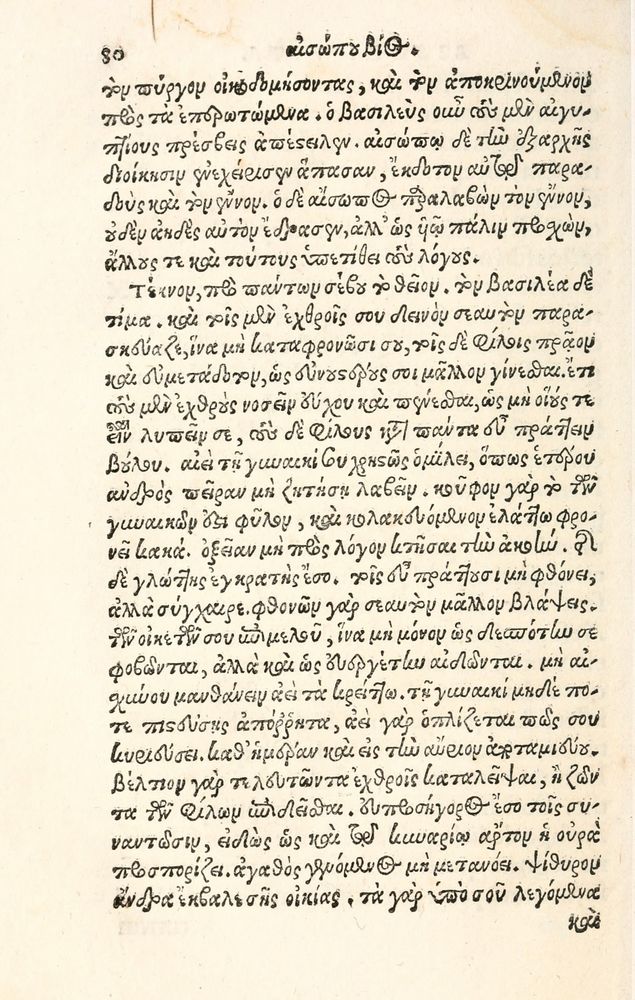 80 αἰσώπου βίος.
τὸν πύργον οἰκοδομήσοντας, καὶ τὸν ἀποκρινούμενον
πρὸς τὰ ἐπερωτώμενα. ὁ βασιλεὺς οὖν τοὺς μὲν αἰγυ-
πτίους πρέσβεις ἀπέστειλεν. αἰσώπῳ δὲ τὴν ἐξαρχῆς
διοίκησιν ἐνεχείρισεν ἅπασαν, ἔκδοτον αὐτῷ παρα-
δοὺς καὶ τὸν ἔννον. ὁ δὲ αἴσωπος παραλαβὼν τὸν ἔννον,
οὐδὲν ἀηδὲς αὐτὸν ἔδρασεν, ἀλλ' ὡς υἱῷ πάλιν προσχὼν,
ἄλλους τε καὶ τούτους ὑπετίθει τοὺς λόγους.
Τέκνον, πρὸ πάντων σέβου τὸ θεῖον. τὸν βασιλέα δὲ
τίμα. καὶ τοῖς μὲν ἐχθροῖς σου δεινὸν σεαυτὸν παρα-
σκεύαζε, ἵνα μὴ καταφρονῶσί σου, τοῖς δὲ φίλοις πρᾶον
καὶ εὐμετάδοτον, ὡς εὐνουστέρους σοι μᾶλλον γίνεσθαι. ἔτι
τοὺς μὲν ἐχθροὺς νοσεῖν εὔχου καὶ πένεσθαι, ὡς μὴ οἵους τε
εἶναι λυπεῖν σε, τοὺς δὲ φίλους κατὰ πάντα εὖ πράττειν
βούλου. ἀεὶ τῇ γυναικί σου χρηστῶς ὁμίλει, ὅπως ἑτέρου
ἀνδρὸς πεῖραν μὴ ζητήσῃ λαβεῖν. κοῦφον γὰρ τὸ τῶν
γυναικῶν ἐστὶ φῦλον, καὶ κολακευόμενον ἐλάττω φρο-
νεῖ κακά. ὀξεῖαν μὴ πρὸς λόγον κτῆσαι τὴν ἀκοήν. τῆς
δὲ γλώττης ἐγκρατὴς ἔσο. τοῖς εὖ πράττουσι μὴ φθόνει,
ἀλλὰ σύγχαιρε. φθονῶν γὰρ σεαυτὸν μᾶλλον βλάψεις.
τῶν οἰκετῶν σου ἐπιμελοῦ, ἵνα μὴ μόνον ὡς δεσπότην σε
φοβῶνται, ἀλλὰ καὶ ὡς εὐεργέτην αἰδῶνται. μὴ αἰ-
σχύνου μανθάνειν ἀεὶ τὰ κρείττω. τῇ γυναικὶ μηδέ πο-
τε πιστεύσῃς ἀπόρρητα, ἀεὶ γὰρ ὁπλίζεται πῶς σου
κυριεύσει. καθ' ἡμέραν καὶ εἰς τὴν αὔριον ἀποταμιεύου.
βέλτιον γὰρ τελευτῶντα ἐχθροῖς καταλεῖψαι, ἢ ζῶν-
τα τῶν φίλων ἐπιδεῖσθαι. εὐπροσήγορος ἔσο τοῖς συ-
ναντῶσιν, εἰδὼς ὡς καὶ τῷ κυναρίῳ ἄρτον ἡ οὐρὰ
προσπορίζει. ἀγαθὸς γενόμενος μὴ μετανόει. ψίθυρον
ἄνδρα ἔκβαλε σῆς οἰκίας. τὰ γὰρ ὑπὸ σοῦ λεγόμενα
καὶ